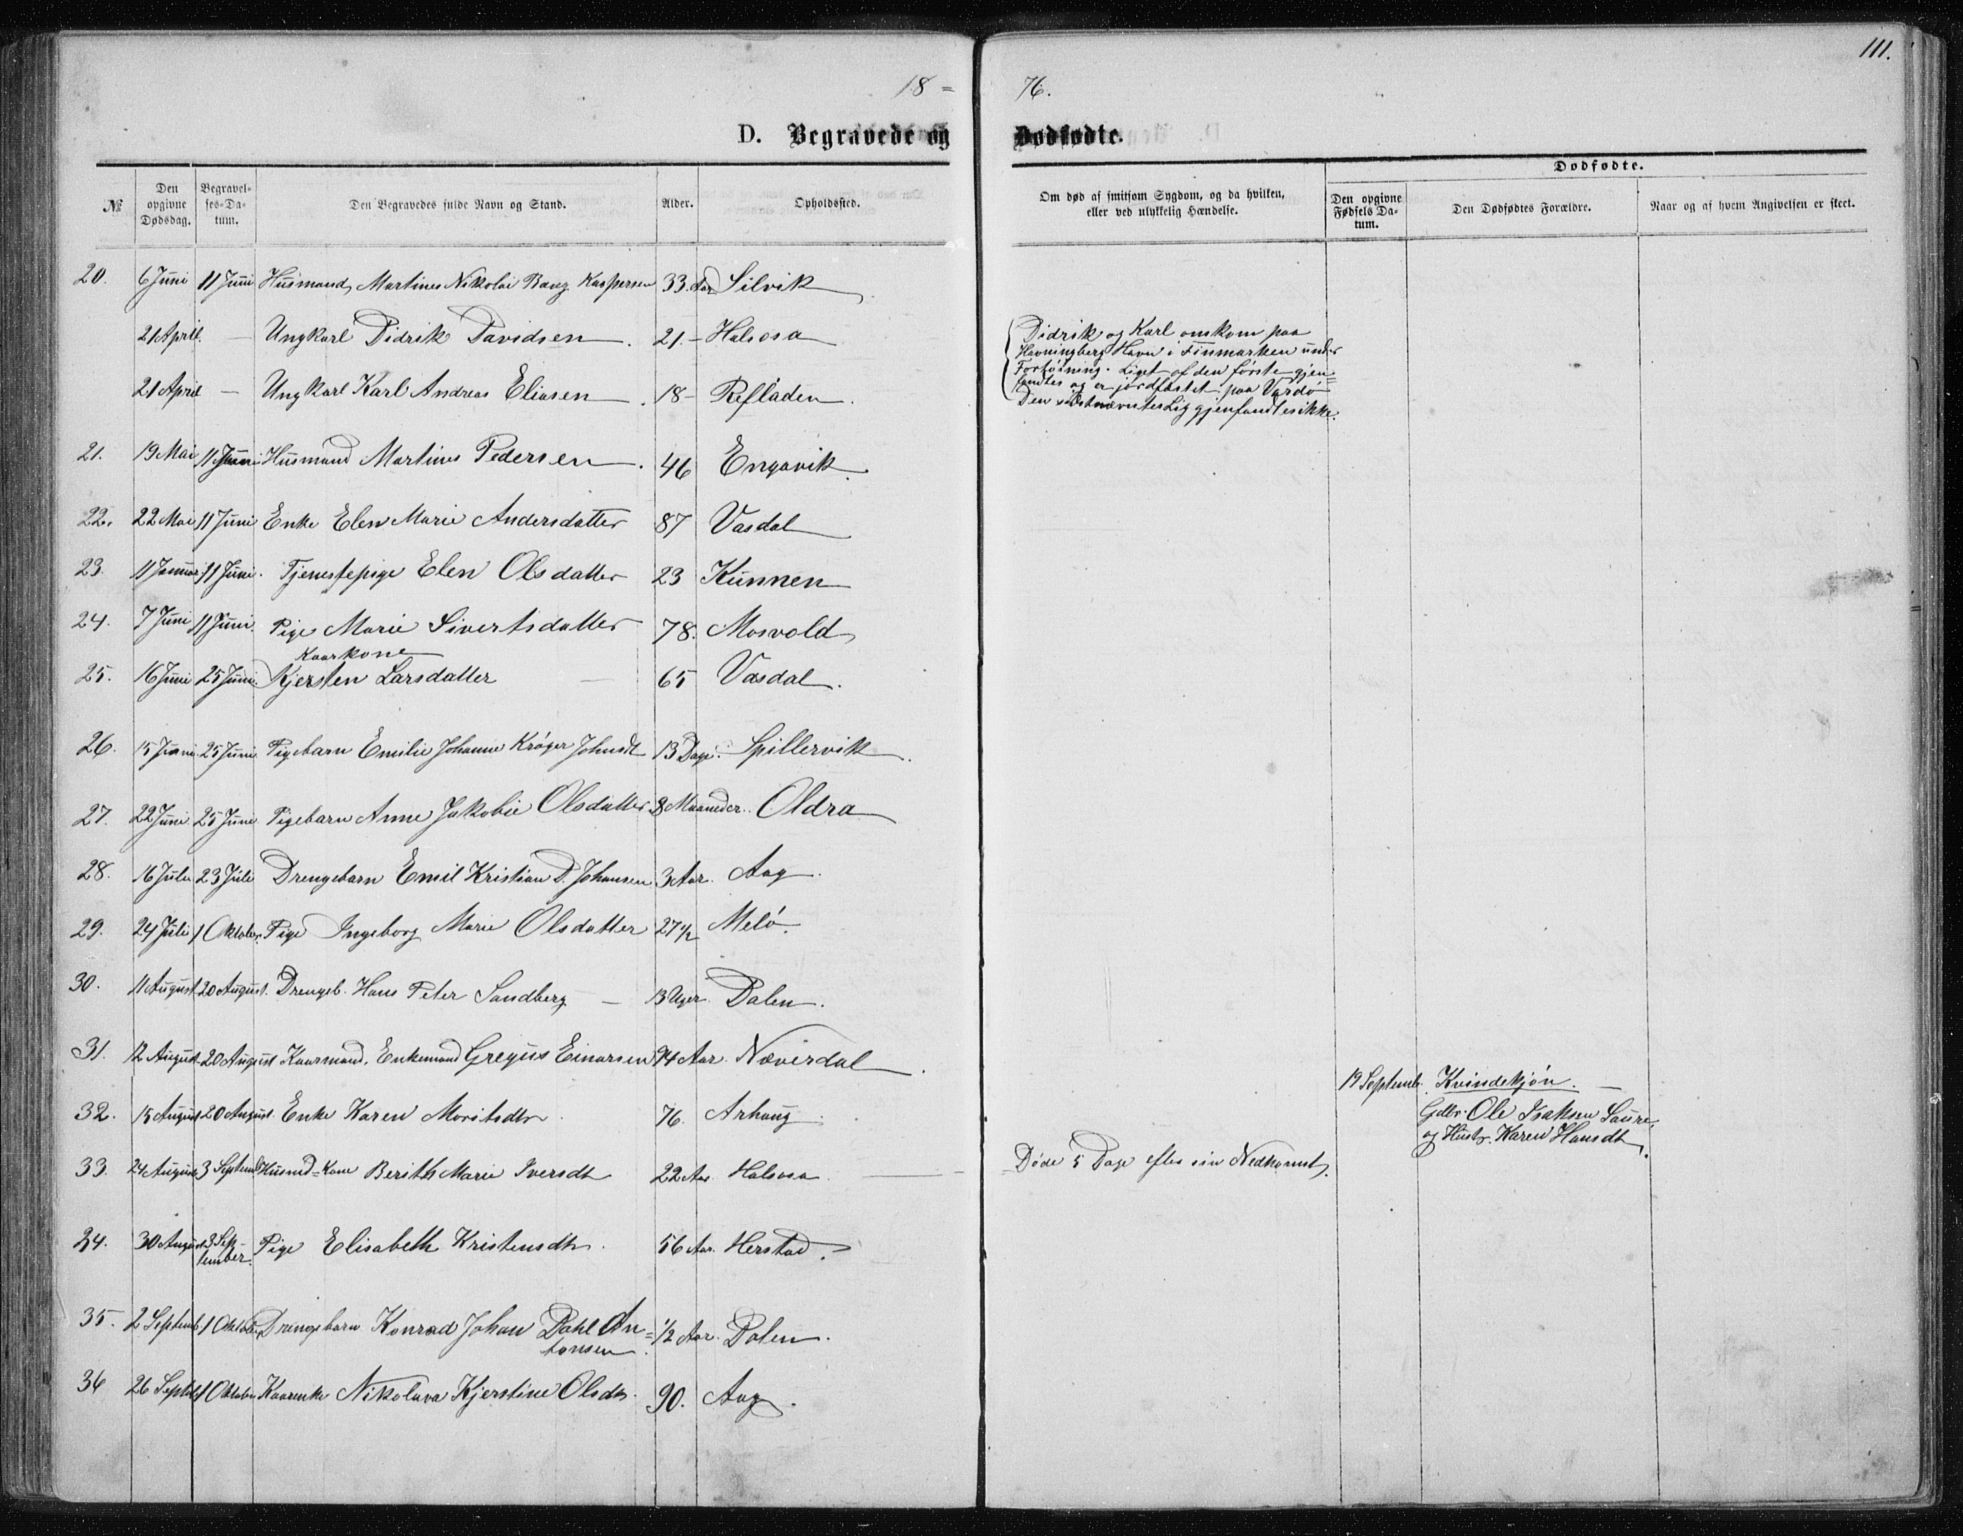 111.
18 = 76.
D. Begravede og Dødfødte.
№
Den opgivne Dødsdag.
Begravelses-Datum.
Den Begravedes fulde Navn og Stand.
Alder.
Opholdssted.
Om død af smitsom Sygdom, og da hvilken, eller ved ulykkelig Hændelse.
Dødfødte.
Den opgivne Fødsels Datum.
Den Dødfødtes Forældre.
Naar og af hvem Angivelsen er skeet.
20. 6 Juni 11 Juni Husmand Martines Nikolai Bang Kaspersen 33. Aar Silvik
21 April. — Ungkarl Didrik Davidsen 21 — Halsosa
21 April — Ungkarl Karl Andreas Eliasen 18 — Refladen.
Didrik og Karl omkom paa
Havningberg Havn i Finmarken under
Fortøining. Liget af den første gjen=
fandtes og er jordfæstet paa Vardø
Den sidstnævntes Lig gjenfandtes ikke.
21. 19 Mai 11 Juni Husmand Martines Pedersen. 46 Engavik.
22. 22 Mai 11 Juni Enke Elen Marie Andersdatter 87 Vasdal
23. 11 Januar 11 Juni. Tjenestepige Elen Olsdatter 23 Kunnen
24. 7 Juni 11 Juni. Pige Marie Sivertsdatter 78. Mosvold
Kaarkone
25. 16 Juni 25 Juni. Kjersten Larsdatter — 65 Vasdal.
26. 15 Juni 25 Juni Pigebarn Emilie Johanne Krøger Johnsdt 13 Dage. Spillervik.
27. 22 Juni 25 Juni Pigebarn Anne Jakobie Olsdatter 8 Maaneder. Oldra
28. 16 Juli 23 Juli Drengebarn Emil Kristian D. Johansen 3 Aar. Aag.
29. 24 Juli 1 Oktober. Pige Ingeborg Marie Olsdatter 27 1/2 Melø.
30. 11 August. 20 August. Drengeb. Hans Peter Sandberg — 13 Uger. Dalen.
31. 12 August 20 August Kaarmand, Enkemand Gregus Einarsen 94 Aar. Næverdal.
19 Septemb. Kvindekjøn. —
Gdbr. Ole Isaksen Saura,
og Hustr. Karen Hansdt.
32. 15 August 20 August. Enke Karen Moritsdtr. 76. Arhaug.
33. 24 August 3 Septemb Husmd=Kone Berith Marie Iversdt 22 Aar Halsosa. — Døde 5 Dage efter sin Nedkomst.
34. 30 August 3 Sep-
tember. Pige Elisabeth Kristensdtr. 56 Aar. Herstad.
35. 2 Septemb 1 Oktober Drengebarn Konrad Johan Dahl An=
tonsen. 1/2 Aar. Dalen.
36 26 Septbr 1 Oktober Kaarenke Nikolava Kjerstine Olsdtr. 90. Aag.